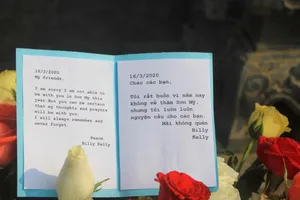 16/3/2020
My Friends,
I am sorry I am not able to
be with you in Son My this
year. But you can be certain
that my thoughts and prayers
will always remember and
never forget.
Peace
Billy Kelly
16/3/2020
Chào các bạn,
Tôi rất buồn vì năm nay
không về thăm Sơn Mỹ,
nhưng tôi luôn luôn
nguyện cầu cho các bạn.
Mãi không quên
Billy
Kelly